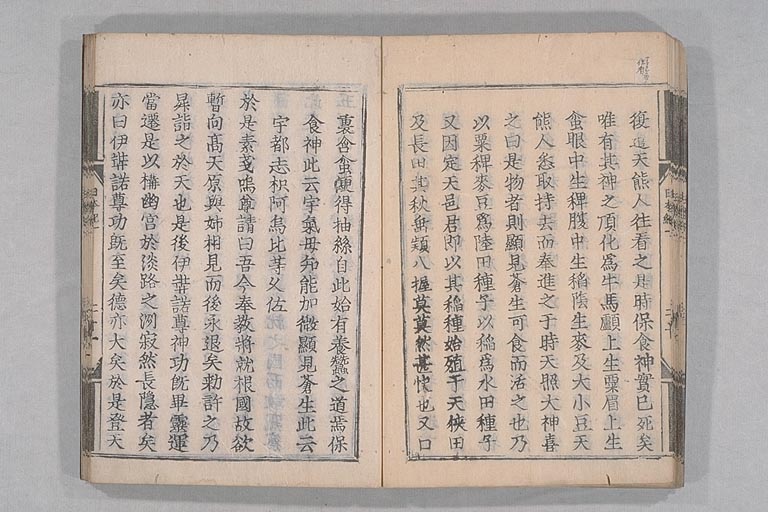 復遣天熊人往看之是時保食神實已死矣
唯有其神之頂化為牛馬顱上生粟眉上生
蚕眼中生稗腹中生稲陰生麥及大小豆天
熊人悉取持去而奉進之于時天照大神喜
之曰是物者則顯見蒼生可食而活之也乃
以粟稗麥豆為陸田種子以稲為水田種子
又因定天邑君即以其稲種始殖于天狹田
及長田其秋垂穎八握莫莫然甚快也又口
裏含蚕便得抽絲自此始有養蠶之道焉保
食神此云宇氣母知能加微顯見蒼生此云
宇都志枳阿烏比等久佐
於是素戔嗚尊請曰吾今奉教將就根國故欲
暫向髙天原與姉相見而後永退矣勅許之乃
昇詣之於天也是後伊弉諾尊神功既畢靈運
當遷是以構幽宮於淡路之洲寂然長隱者矣
亦曰伊弉諾尊功既至矣德亦大矣於是登天
日本紀